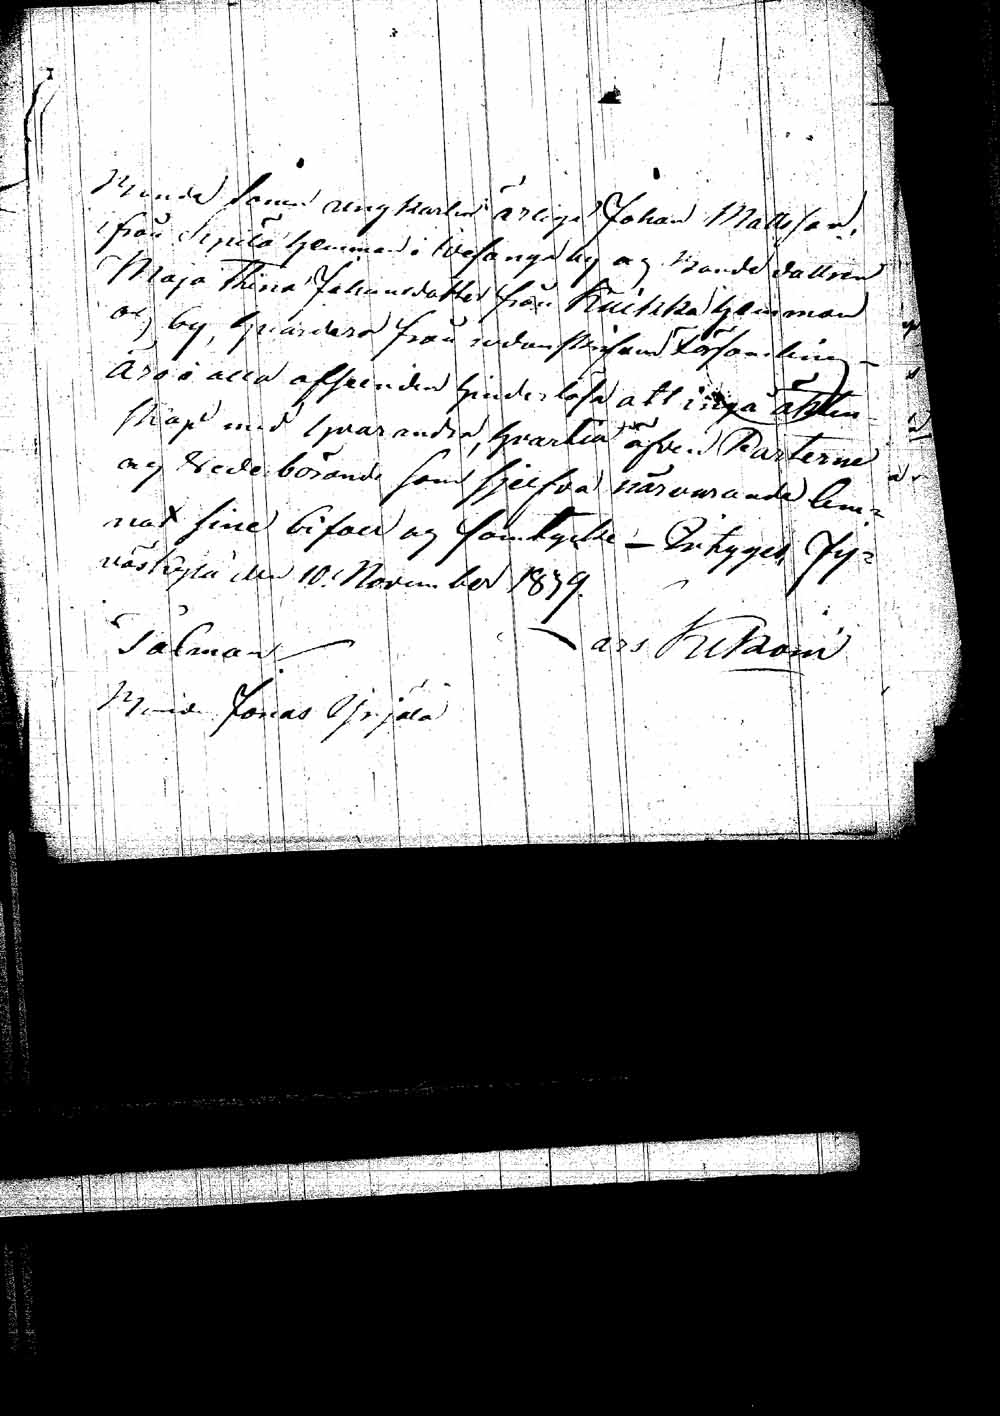 Bonde sonen ungkarlen ärlige Johan Mattsson,
ifrån Seppilä hemman i Wesanga by og Bonde dottren
Maja Thina Johansdotter från Kuikka hemman
og by, hvardera från redan skrifven Församling –
Äro i alla afseenden hinderlösa att ingå äkten-
skap med hvarandra, hvartill äfven Parterne
og Vederbörande som sjelfva närvarande lem=
nat sine bifall og samtycke – Betyges, Jy=
väskylä den 10. November 1839.
Lars
Talman
Bonden Jonas Yrjälä